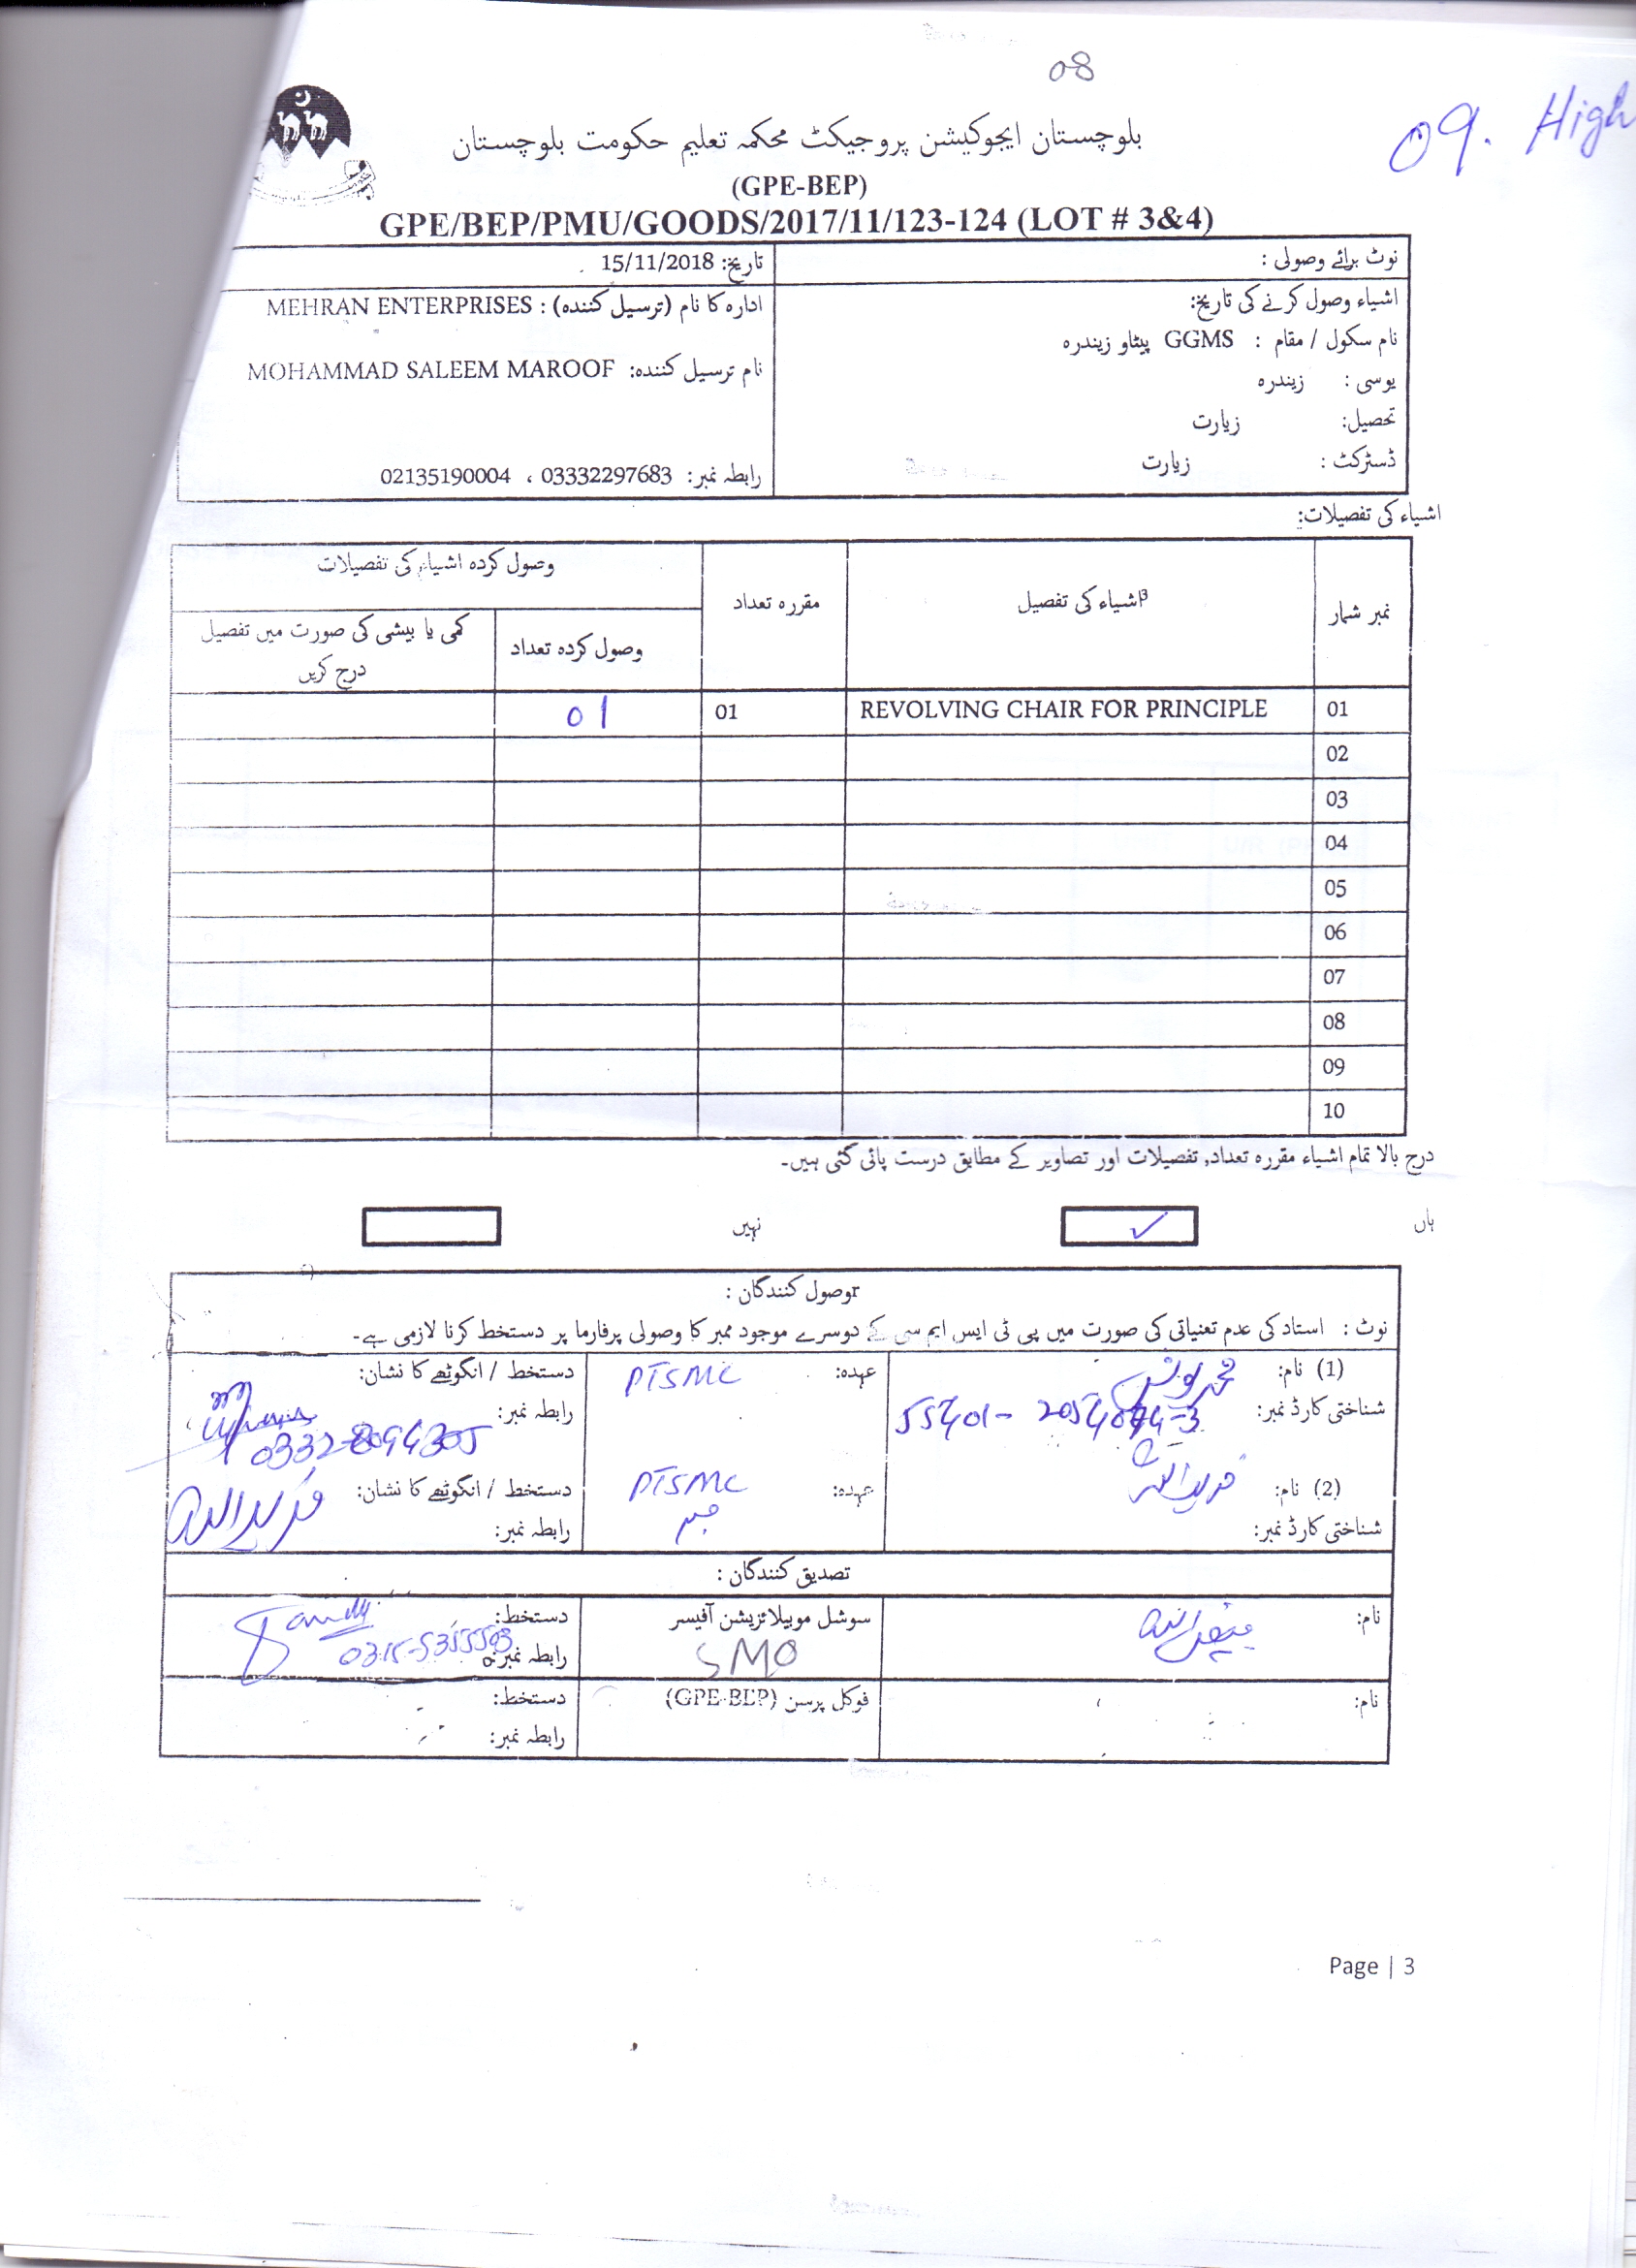 08
09. High
بلوچستان ایجوکیشن پروجیکٹ محکمہ تعلیم حکومت بلوچستان
(GPE-BEP)
GPE/BEP/PMU/GOODS/2017/11/123-124 (LOT # 3&4)
نوٹ برائے وصولی :
تاریخ: 15/11/2018
اشیاء وصول کرنے کی تاریخ:
ادارہ کا نام (ترسیل کنندہ) : MEHRAN ENTERPRISES
نام سکول / مقام : GGMS پیٹاو زیندرہ
نام ترسیل کنندہ: MOHAMMAD SALEEM MAROOF
یوسی : زیندرہ
تحصیل: زیارت
ڈسٹرکٹ : زیارت
رابطہ نمبر: 03332297683 ، 02135190004
اشیاء کی تفصیلات:
نمبر شمار
اشیاء کی تفصیل
مقررہ تعداد
وصول کردہ اشیاء کی تفصیلات
وصول کردہ تعداد
کمی یا بیشی کی صورت میں تفصیل
درج کریں
01 REVOLVING CHAIR FOR PRINCIPLE 01 01
02
03
04
05
06
07
08
09
10
درج بالا تمام اشیاء مقررہ تعداد, تفصیلات اور تصاویر کے مطابق درست پائی گئی ہیں۔
ہاں ✓ نہیں
وصول کنندگان :
نوٹ : استاد کی عدم تعنیاتی کی صورت میں پی ٹی ایس ایم سی کے دوسرے موجود ممبر کا وصولی پرفارما پر دستخط کرنا لازمی ہے۔
(1) نام: محمد یونس عہدہ: PTSMC دستخط / انگوٹھے کا نشان:
شناختی کارڈ نمبر: رابطہ نمبر: 0332-8094305
(2) نام: عہدہ: PTSMC دستخط / انگوٹھے کا نشان:
ممبر
شناختی کارڈ نمبر: رابطہ نمبر:
تصدیق کنندگان :
نام: سوشل موبیلائزیشن آفیسر دستخط:
SMO رابطہ نمبر:
نام: فوکل پرسن (GPE-BEP) دستخط:
رابطہ نمبر:
Page | 3